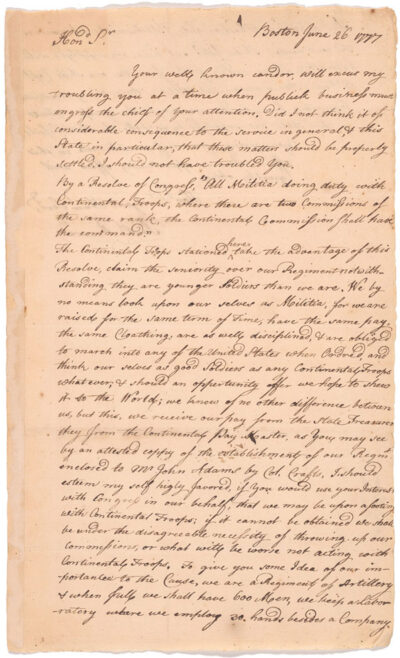 Boston June 26 1777
Hond. Sr.
Your well known candor, will excuse my
troubling you at a time when publick business must
engross the chief of Your attention. Did I not think it of
considerable consequence to the service in general & this
State in particular, that these matters should be properly
settled, I should not have troubled You.
By a Resolve of Congress, "All Militia doing duty with
Continental Troops, where there are two Commissions of
the same rank, the Continental Commission shall have
the command."
The Continental Troops stationed here take the advantage of this
Resolve, claim the seniority over our Regiment notwith-
standing they are younger Soldiers than we are. We by
no means look upon our selves as Militia, for we are
raised for the same term of time, have the same pay,
the same Cloathing, are as well disciplined, & are obliged
to march into any of the United States when Ordred, and
think our selves as good Soldiers as any Continental Troops
whatever, & should an opportunity offer we hope to shew
it to the World; we know of no other difference between
us, but this, we receive our pay from the State Treasurer
they from the Continental Pay Master, as You may see
by an attested coppy of the establishment of our Regmt.
enclosed to Mr. John Adams by Col. Crafts, I should
esteem my self higly favored, if You would use your Interest
with Congress in our behalf, that we may be upon a footing
with Continental Troops; if it cannot be obtained we shall
be under the disagreable necessity of throwing up our
commissions, or what will be worse not acting with
Continental Troops. To give you some Idea of our im-
portance to the Cause, we are a Regiment of Artillery
& when full we shall have 600 Men, we keep a Labor-
ratory where we employ 30 hands besides a Company